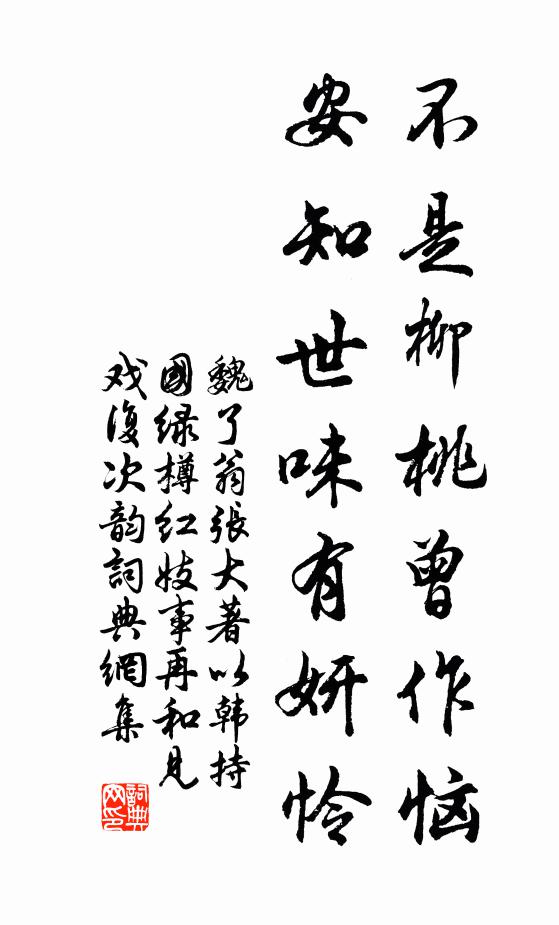 不是柳桃曾作恼
安知世味有妍怜
魏了翁張大著以韩持
國緑樽红妓事再和见
戏復次韵詞典網集
詞典网印